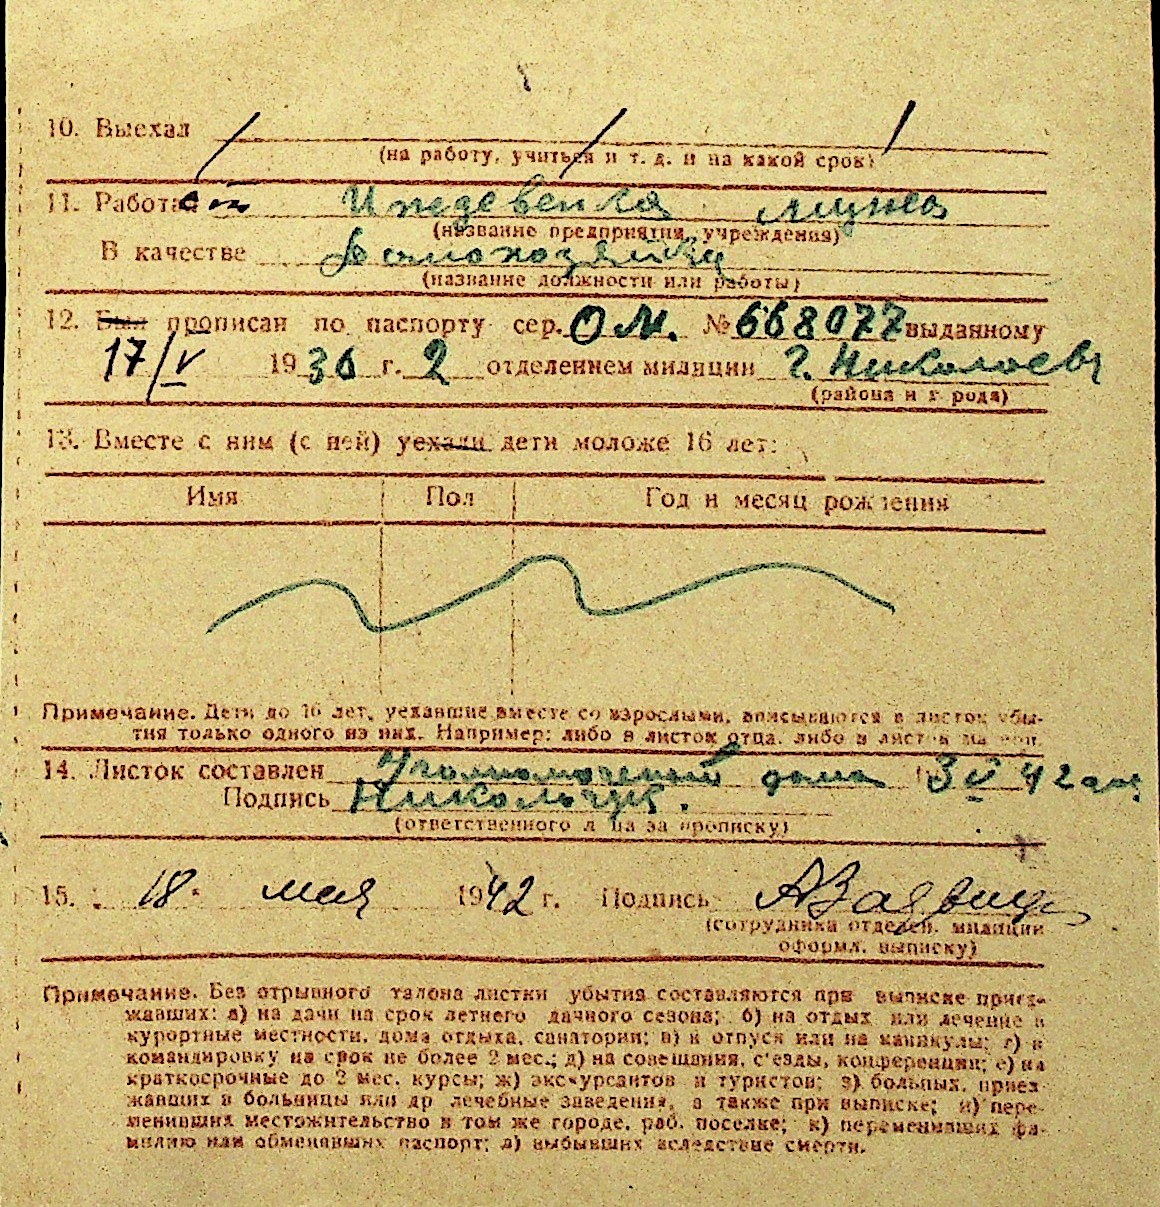 10. Выехал
(на работу, учиться и т. д. и на какой срок)
11. Работал
Иждевенка мужа
(название предприятия, учреждения)
В качестве Домохозяйка
(название должности или работы)
12. Был прописан по паспорту сер. О.М. № 668077 выданному
17/V 1936 г. 2 отделением милиции г. Николоев
(района и города)
13. Вместе с ним (с ней) уехали дети моложе 16 лет:
Имя Пол Год и месяц рождения
Примечание. Дети до 16 лет, уехавшие вместе со взрослыми, вписываются в листок убы-
тия только одного из них. Например: либо в листок отца, либо в листок матери.
14. Листок составлен Уполномоченый дома 3 V 42
Подпись Никольчук.
(ответственного лица за прописку)
15. 18. мая 1942 г. Подпись
(сотрудника отделен. милиции
оформл. выписку)
Примечание. Без отрывного талона листки убытия составляются при выписке приез-
жавших: а) на дачи на срок летнего дачного сезона; б) на отдых или лечение в
курортные местности, дома отдыха, санатории; в) в отпуск или на каникулы; г) в
командировку на срок не более 2 мес.; д) на совещания, с'езды, конференции; е) на
краткосрочные до 2 мес. курсы; ж) экскурсантов и туристов; з) больных, приез-
жавших в больницы или др лечебные заведения, а также при выписке; и) пере-
менивших местожительство в том же городе, раб. поселке; к) переменивших фа-
милию или обменявших паспорт; л) выбывших вследствие смерти.